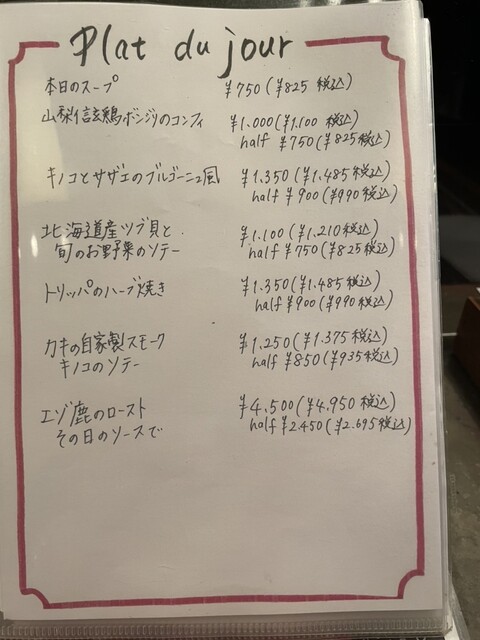 Plat du jour
本日のスープ ¥750(¥825 税込)
山梨信玄鶏ボンジリのコンフィ ¥1.000(¥1.100 税込)
half ¥750(¥825税込)
キノコとサザエのブルゴーニュ風 ¥1.350(¥1.485税込)
half ¥900(¥990税込)
北海道産ツブ貝と ¥1.100(¥1.210税込)
旬のお野菜のソテー half ¥750(¥825税込)
トリッパのハーブ焼き ¥1.350(¥1.485税込)
half ¥900(¥990税込)
カキの自家製スモーク ¥1.250(¥1.375税込)
キノコのソテー half ¥850(¥935税込)
エゾ鹿のロースト ¥4.500(¥4.950税込)
その日のソースで half ¥2.450(¥2.695税込)